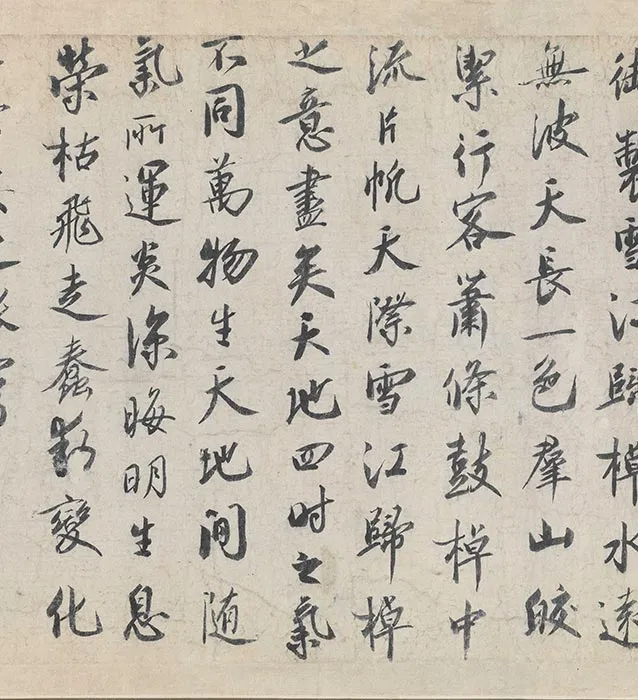 御製雪江歸棹水遠
無波天長一色羣山皎
潔行客蕭條鼓棹中
流片帆天際雪江歸棹
之意盡矣天地四時之氣
不同萬物生天地間随
氣所運炎凉晦明生息
榮枯飛走蠢動變化